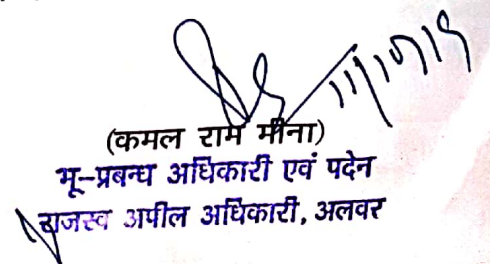 11/10/19
(कमल राम मीना)
भू-प्रबन्ध अधिकारी एवं पदेन
राजस्व अपील अधिकारी, अलवर